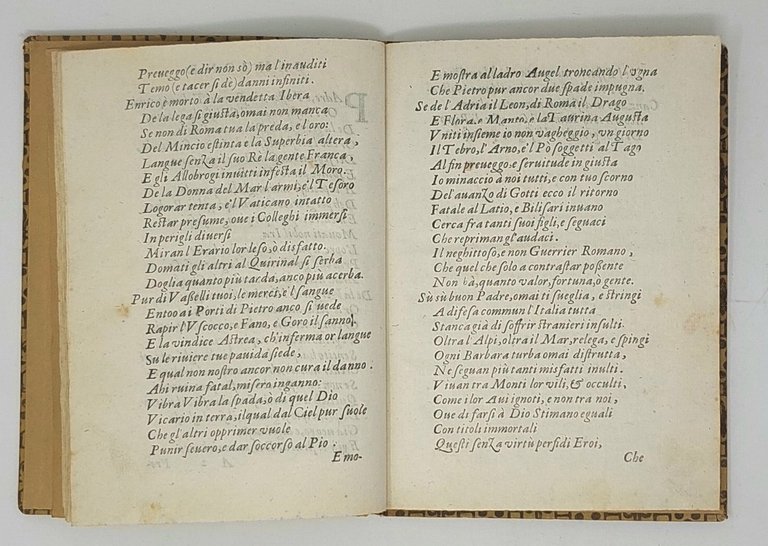 Preueggo (e dir non sò) ma l'inauditi
Temo (e tacer si dè) danni infiniti.
Enrico è morto à la vendetta Ibera
De la lega si giusta, omai non manca
Se non di Roma tua la preda, e l'oro:
Del Mincio estinta e la Superbia altera,
Langue senza il suo Rè la gente Franca,
E gli Allobrogi inuitti infesta il Moro.
De la Donna del Mar l'armi, e'l Tesoro
Logorar tenta, e'l Vaticano intatto
Restar presume, oue i Colleghi immersi
In perigli diuersi
Miran l'Erario lor leso, ò disfatto.
Domati gli altri al Quirinal si serba
Doglia quanto più tarda, anco più acerba.
Pur di Vaßelli tuoi, le merci, e'l sangue
Entro a i Porti di Pietro anco si vede
Rapir l'Vscocco, e Fano, e Goro il sanno,
E la vindice Astrea, ch'inferma or langue
Su le riuiere tue pauida siede,
E qual non nostro ancor non cura il danno.
Ahi ruina fatal, misero inganno:
Vibra Vibra la spada, ò di quel Dio
Vicario in terra, il qual dal Ciel pur suole
Che gl'altri opprimer vuole
Punir seuero, e dar soccorso al Pio.
E mo-
E mostra al ladro Augel troncando l'vgna
Che Pietro pur ancor due spade impugna.
Se de l'Adria il Leon, di Roma il Drago
E Flora, e Manto, e la Taurina Augusta
Vniti insieme io non vagheggio, vn giorno
Il Tebro, l'Arno, e'l Pò soggetti al Tago
Al fin preueggo, e seruitude ingiusta
Io minaccio à noi tutti, e con tuo scorno
De l'auanzo di Gotti ecco il ritorno
Fatale al Latio, e Bilisari inuano
Cerca fra tanti suoi figli, e seguaci
Che repriman gl'audaci.
Il neghittoso, e non Guerrier Romano,
Che quel che solo a contrastar poßente
Non hà, quanto valor, fortuna, ò gente.
Sù sù buon Padre, omai ti sueglia, e stringi
A difesa commun l'Italia tutta
Stanca già di soffrir stranieri insulti.
Oltra l'Alpi, oltra il Mar, relega, e spingi
Ogni Barbara turba omai distrutta,
Ne seguan più tanti misfatti inulti.
Viuan tra Monti lor vili, & occulti,
Come i lor Aui ignoti, e non tra noi,
Oue di farsi à Dio Stimano eguali
Con titoli immortali
Questi senza virtù perfidi Eroi,
Che